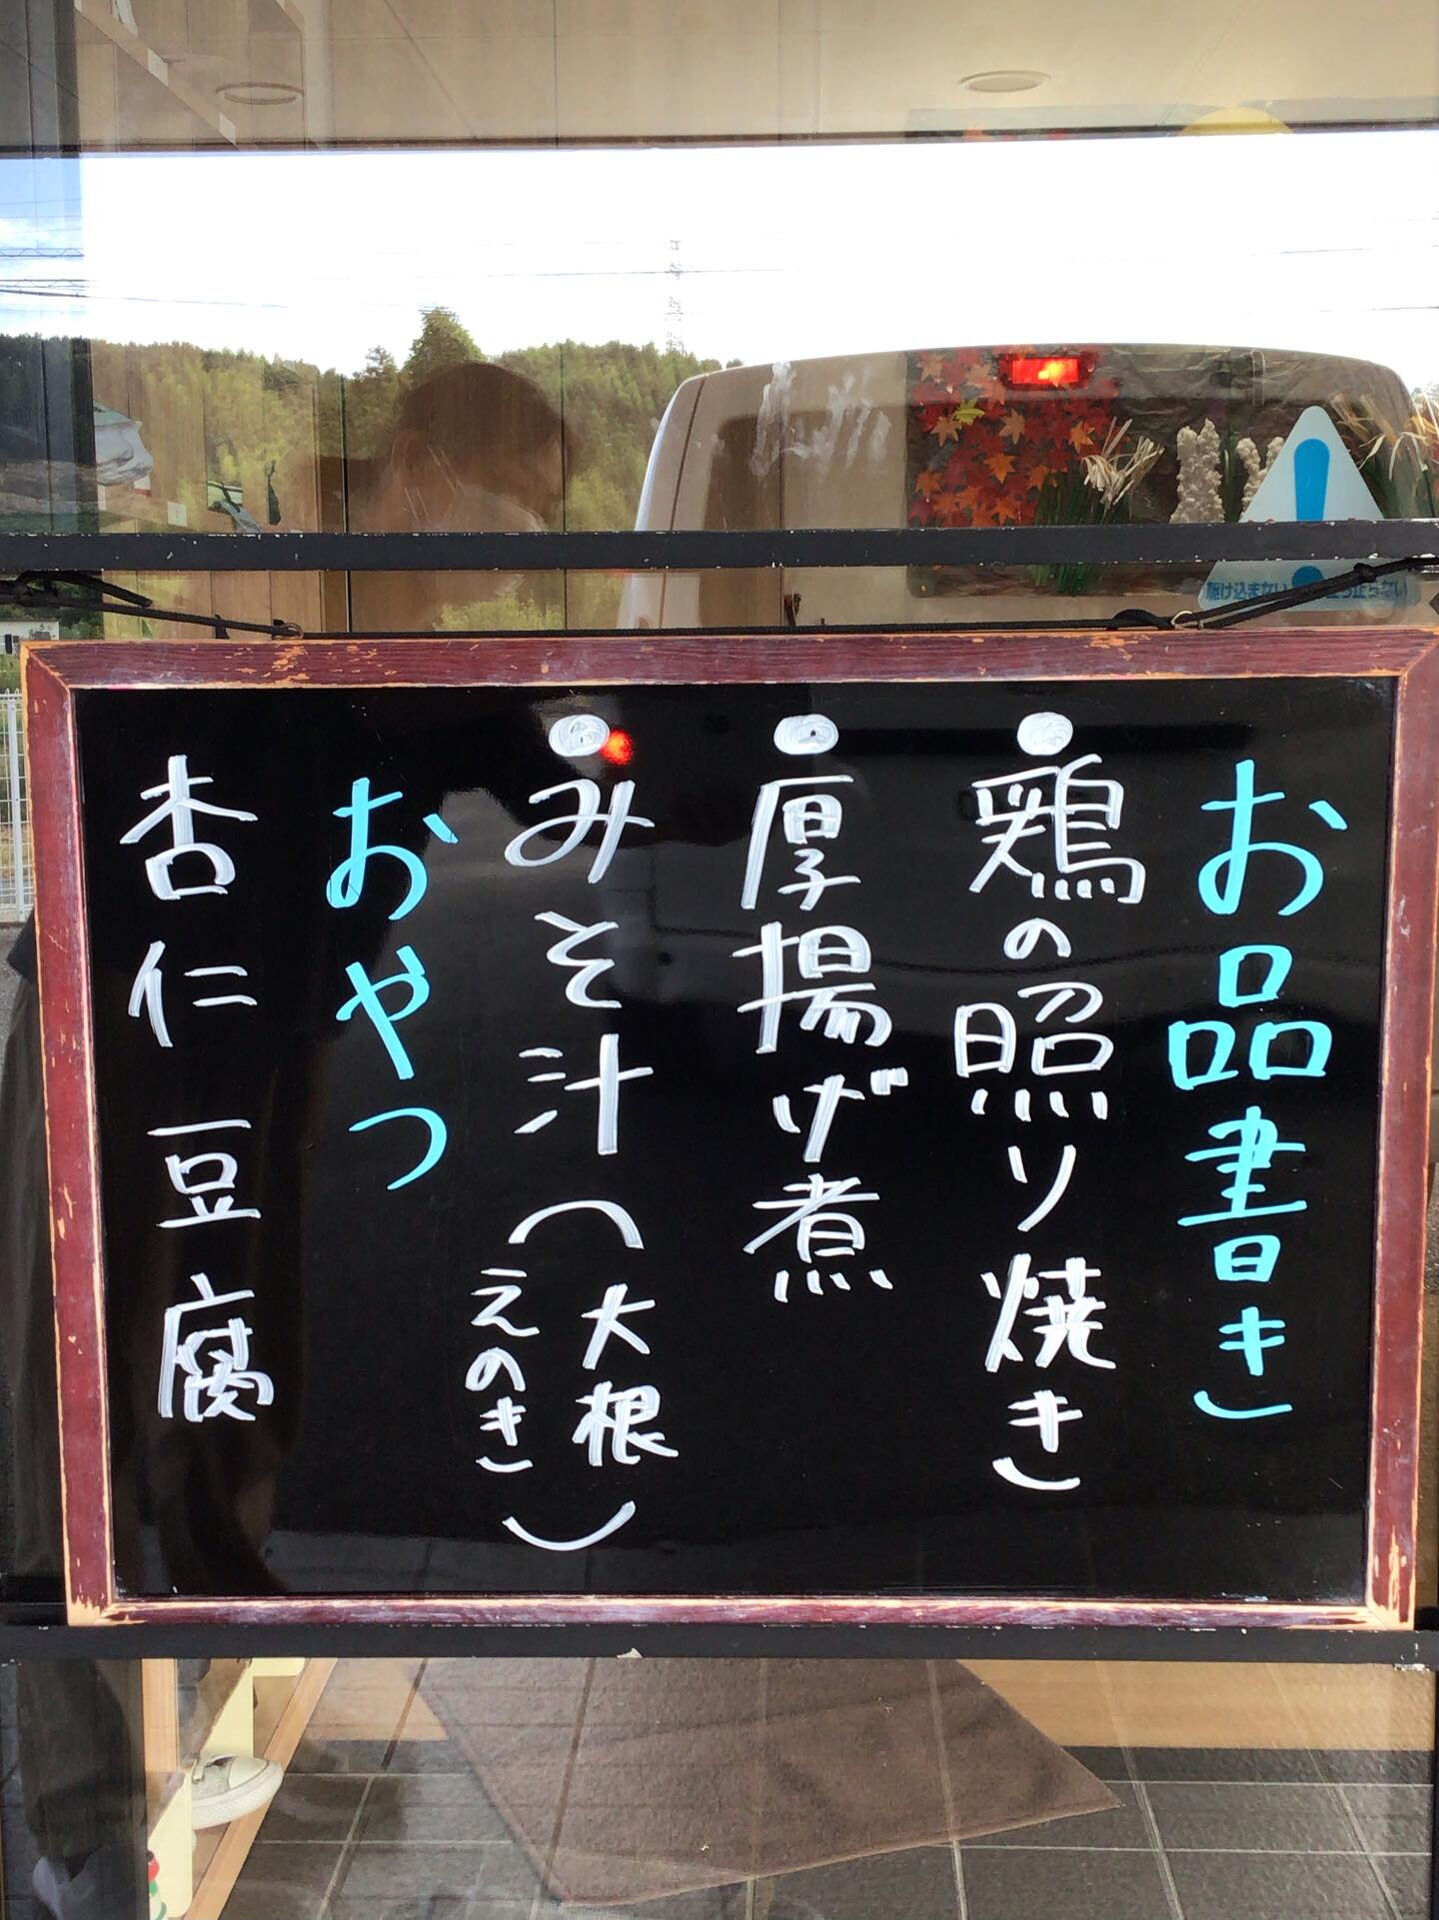 お品書き
鶏の照り焼き
厚揚げ煮
みそ汁(大根
えのき)
おやつ
杏仁豆腐
駆け込まない